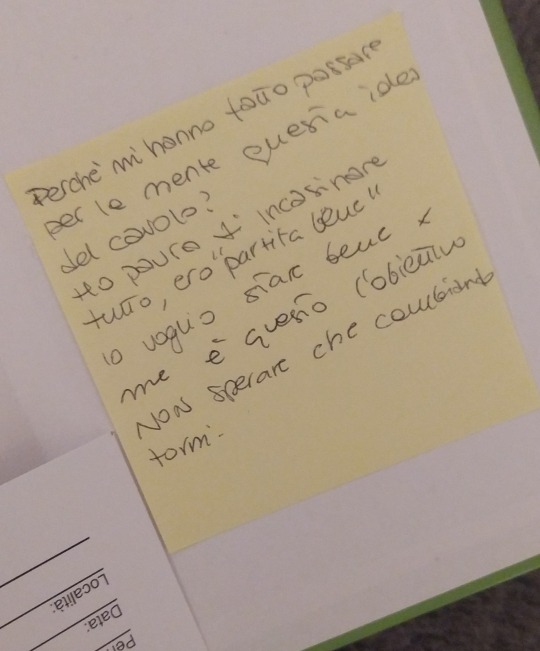 Perchè mi hanno fatto passare
per la mente questa idea
del cavolo?
Ho paura di incasinare
tutto, ero "partita bene"
io voglio stare bene x
me è questo l'obiettivo
NON sperare che cambiando
torni.
Località:
Data:
Per